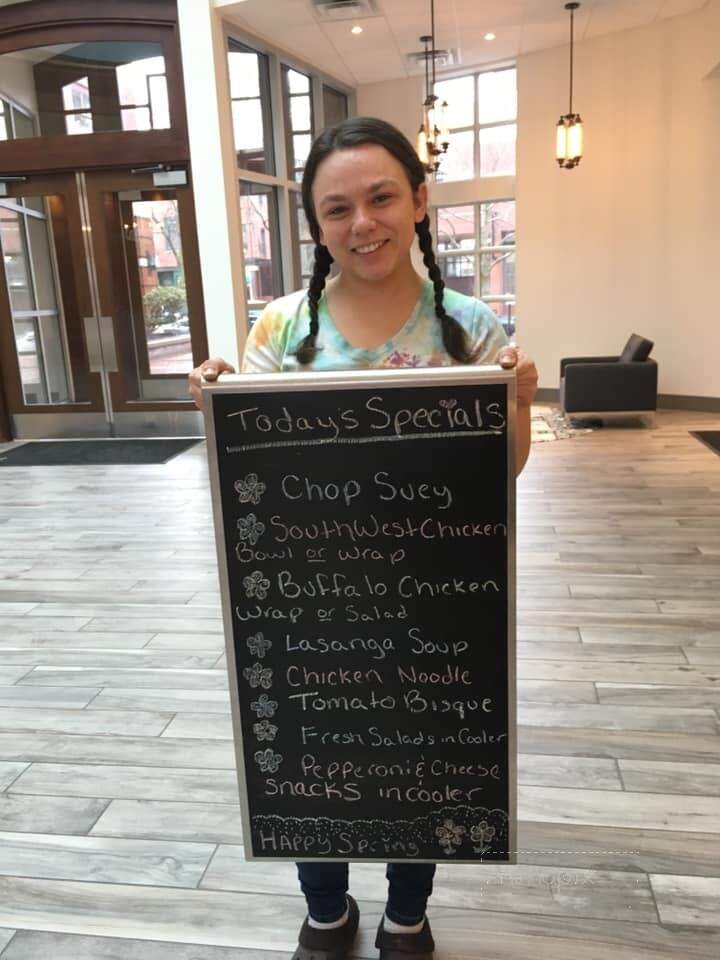 Today's Specials
Chop Suey
SouthWest Chicken
Bowl or Wrap
Buffalo Chicken
Wrap or Salad
Lasanga Soup
Chicken Noodle
Tomato Bisque
Fresh Salads in Cooler
Pepperoni & Cheese
Snacks in cooler
HAPPY Spring